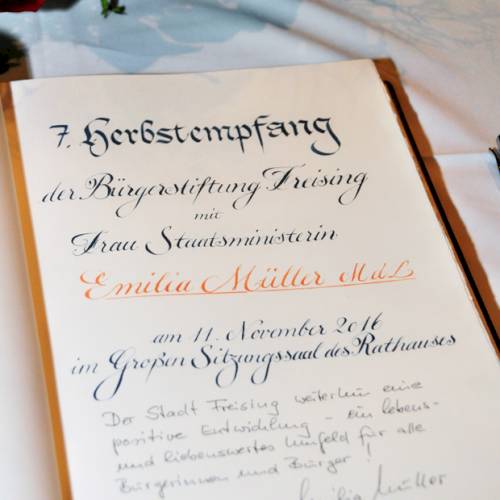 7. Herbstempfang
der Bürgerstiftung Freising
mit
Frau Staatsministerin
Emilia Müller MdL
am 11. November 2016
im Großen Sitzungssaal des Rathauses
Der Stadt Freising weiterhin eine
positive Entwicklung - ein lebens-
und liebenswertes Umfeld für alle
Bürgerinnen und Bürger!
Emilia Müller